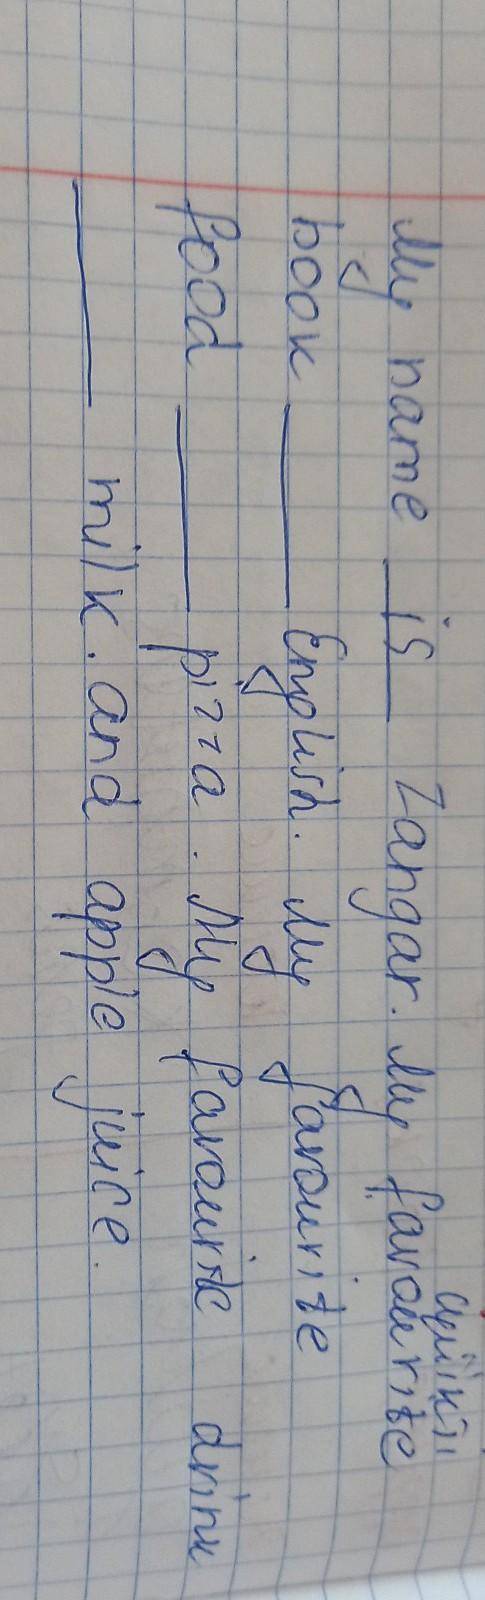 My name is Zangar. My favourite
book ____ English. My favourite
food ____ pizza. My favourite drink
____ milk. and apple juice.